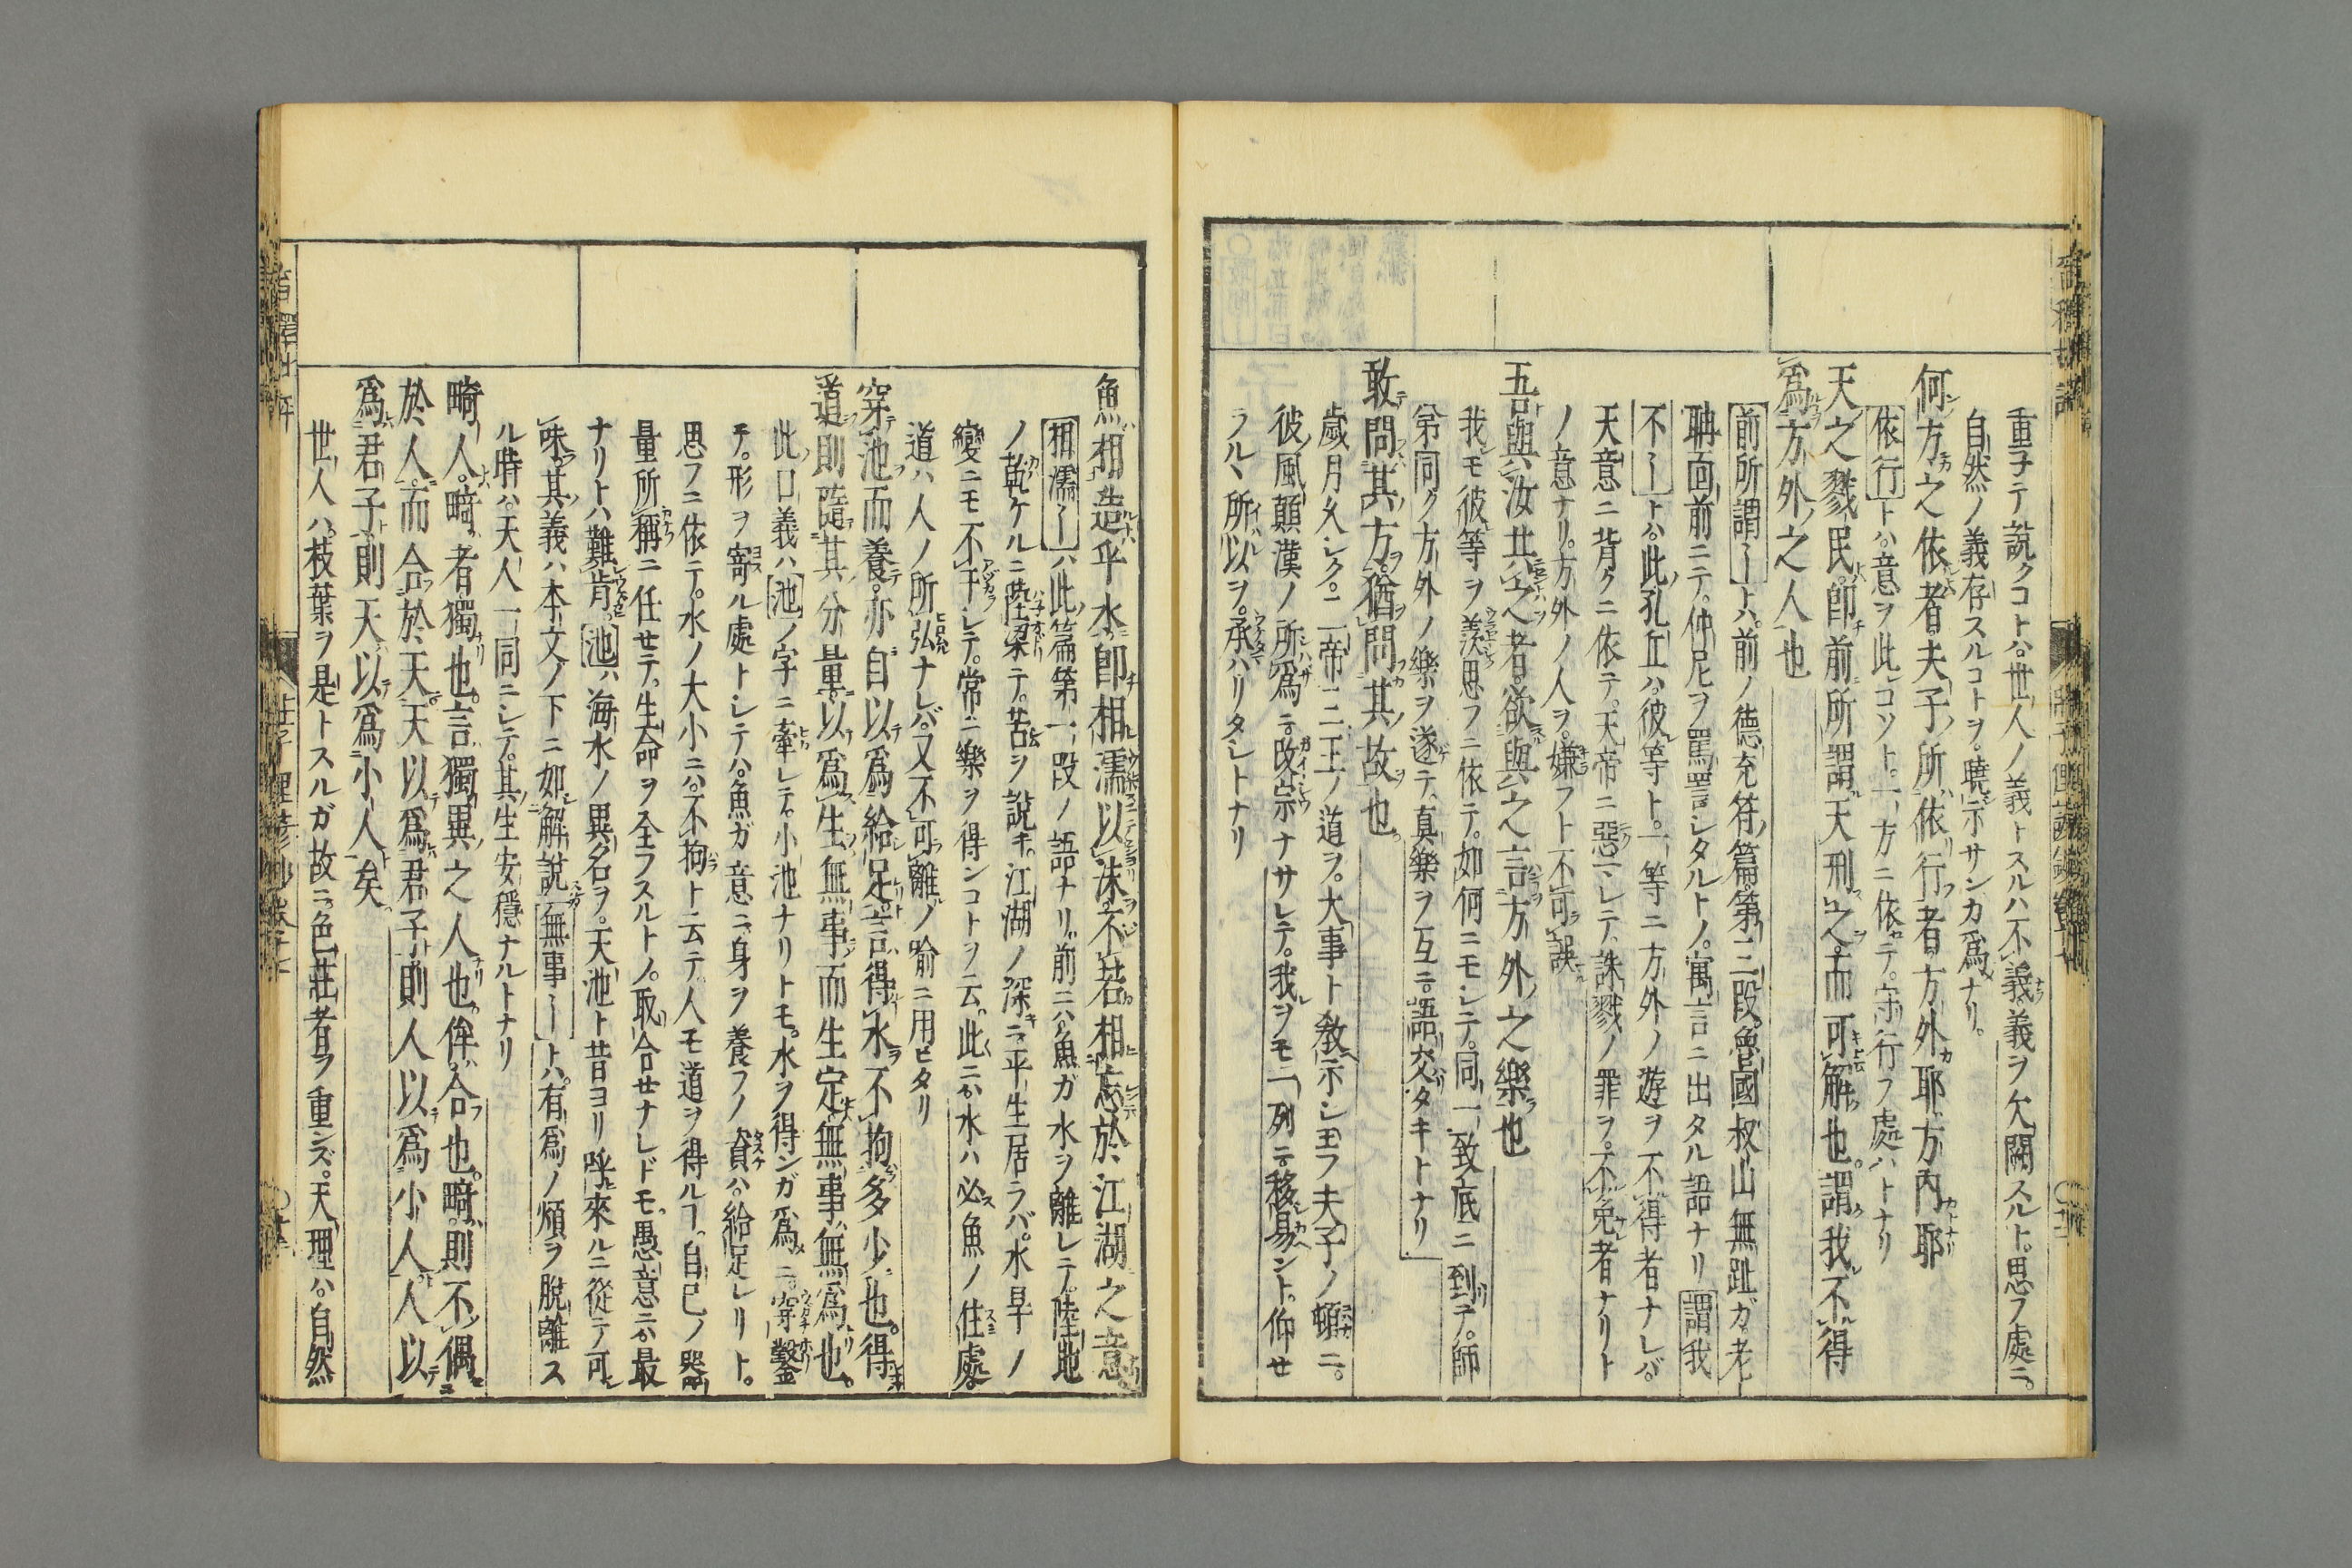 重子テ説クコトハ。世人ノ義トスルハ不義。義ヲ欠闕スルト。思フ處ニ。
自然ノ義存スルコトヲ。曉示サンカ爲ナリ。
何方之依者。夫子所依行者。方外耶。方内耶
依行トハ。意ヲ此コソト。一方ニ依テ。守行フ處ハトナリ
天之戮民。卽前所謂天刑之。而可解也。謂我不得
爲方外之人也
前所謂〡トハ。前ノ德充符ノ篇。第二段。魯國叔山無趾ガ。老
聃面前ニテ。仲尼ヲ罵詈シタルトノ。寓言ニ出タル語ナリ謂我
不〡トハ。此孔丘ハ。彼等ト。一等ニ方外ノ遊ヲ不得者ナレバ。
天意ニ背クニ依テ。天帝ニ惡マレテ。誅戮ノ罪ヲ。不免者ナリト
ノ意ナリ。方外ノ人ヲ。嫌フト不可誤
吾與汝共之者。欲與之言方外之樂也
我モ彼等ヲ羨思フニ依テ。如何ニモシテ。同一致ノ底ニ到テ。師
弟同ク方外ノ樂ヲ遂テ。眞樂ヲ互ニ語交タキトナリ
敢問其方。猶問其故也
歲月久シク。二帝三王ノ道ヲ。大事ト敎示シ玉フ夫子ノ。頓ニ。
彼風顚漢ノ所爲ニ改宗ナサレテ。我ヲモ一列ニ移易ント。仰せ
ラルヽ所以ヲ。承ハリタシトナリ
魚相造乎水。卽相濡以沫。不若相忘於江湖之意
相濡〡ハ此ノ篇第一段ノ語ナリ。前ニハ魚ガ水ヲ離レテ。陸地
ノ乾ケルニ陸梁テ。苦ヲ説キ。江湖ノ深ニ。平生居ラバ。水旱ノ
變ニモ不干レテ。常ニ樂ヲ得ンコトヲ云。此ニハ水ハ必魚ノ住處。
道ハ人ノ所弘ナレバ。又不可離ノ喩ニ用ヒタリ
穿池而養。亦自以爲給足。言得水不拘多少也。得
道則隨其分量。以爲生。無事而生定。無事。無爲也。
此口義ハ池ノ字ニ牽レテ。小池ナリトモ。水ヲ得ンガ爲ニ。穿鑿
テ。形ヲ寄ル處トシテハ。魚ガ意ニ。身ヲ養フノ資ハ。給足レリト。
思フニ依テ。水ノ大小ニハ。不拘ト云テ。人モ道ヲ得ルヿ。自己ノ器
量所稱ニ任せテ。生命ヲ全フスルトノ。取合せナレドモ。愚意ニハ最
ナリトハ難肯。池ハ海水ノ異名ヲ。天池ト昔ヨリ呼來ルニ從テ可
味。其義ハ本文ノ下ニ如解説無事〡トハ。有爲ノ煩ヲ脱離ス
ル時ハ。天人一同ニシテ。其生安穩ナルトナリ
畸人。畸者獨也。言獨異之人也。侔。合也。畸。則不偶
於人。而合於天。天以爲君子。則人以爲小人。人以
爲君子。則天以爲小人矣
世人ハ。枝葉ヲ是トスルガ故ニ。色莊者ヲ重ンズ。天理ハ。自然